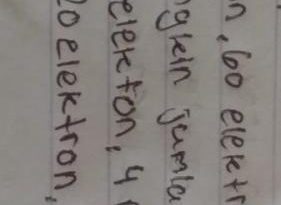 n, 60 elektr
ngkin jumla
elekton, 4
20 elektron,